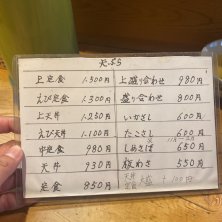 天ぷら
上定食 1.500円
えび定食 1.300円
上天丼 1.250円
えび天丼 1.100円
中定食 980円
天丼 930円
定食 850円
上盛り合わせ 980円
盛り合わせ 800円
いかさし 600円
たこさし 600円
しめさば 650円
板わさ 550円
天丼
定食 大盛 +100円